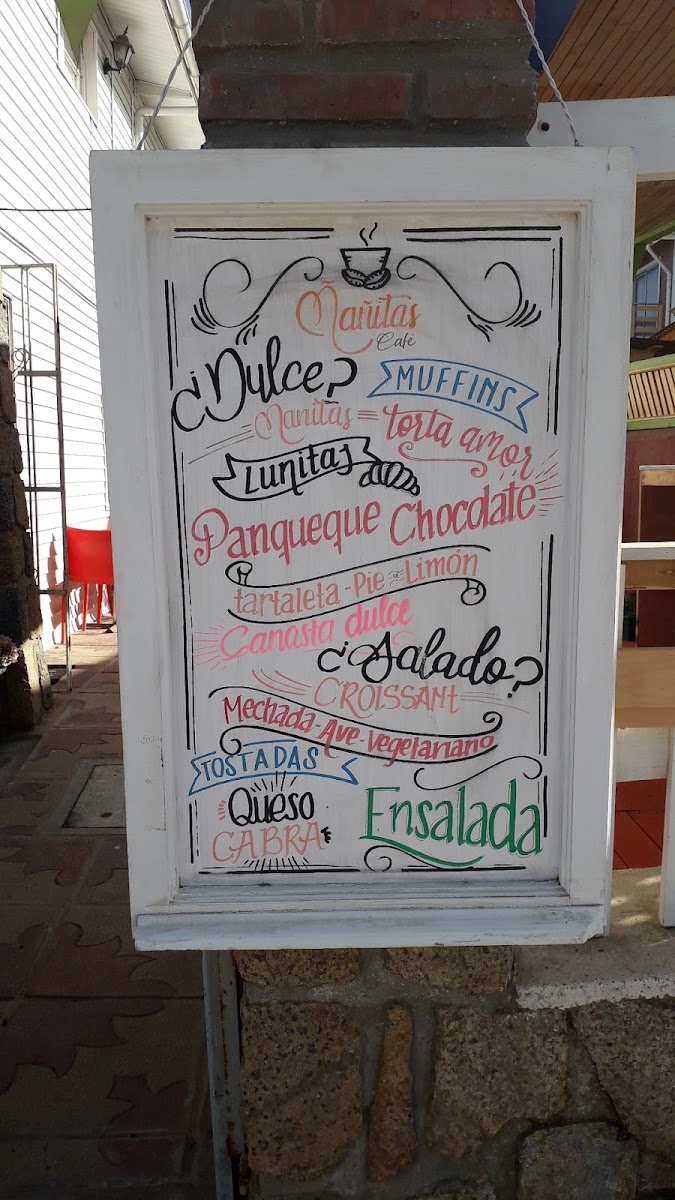 Mañitas
Café
¿Dulce?
MUFFINS
Mañitas
torta amor
Lunitas
Panqueque Chocolate
tartaleta - Pie de Limón
Canasta dulce
¿Salado?
CROISSANT
Mechada - Ave - Vegetariano
TOSTADAS
Queso
CABRA
Ensalada